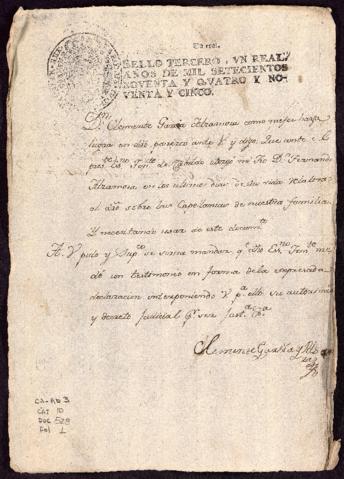 Un real.
SELLO TERCERO, VN REAL,
AÑOS DE MIL SETECIENTOS
NOVENTA Y QUATRO Y NO-
VENTA Y CINCO.
Dn Clemente Garcia Alzamora como mejor haya
lugar en dro parezco ante V. y digo: Que ante el
mi Tio Dn Fernando
Alzamora en los ultimos dias de su vida declaro
sobre las Capellanias de nuestra familia
Y necesitando usar de este docum.to
A V. pido y Supco se sirva mandar q.e dho Esno
me
dé un testimonio en forma de la expresada
declaracion interponiendo V. pa ello su autoridad
y decreto judicial justa
Clemente Garcia y Alza
mo
ra
CA-AD 3
CAJ 10
DOC 528
Fol 1